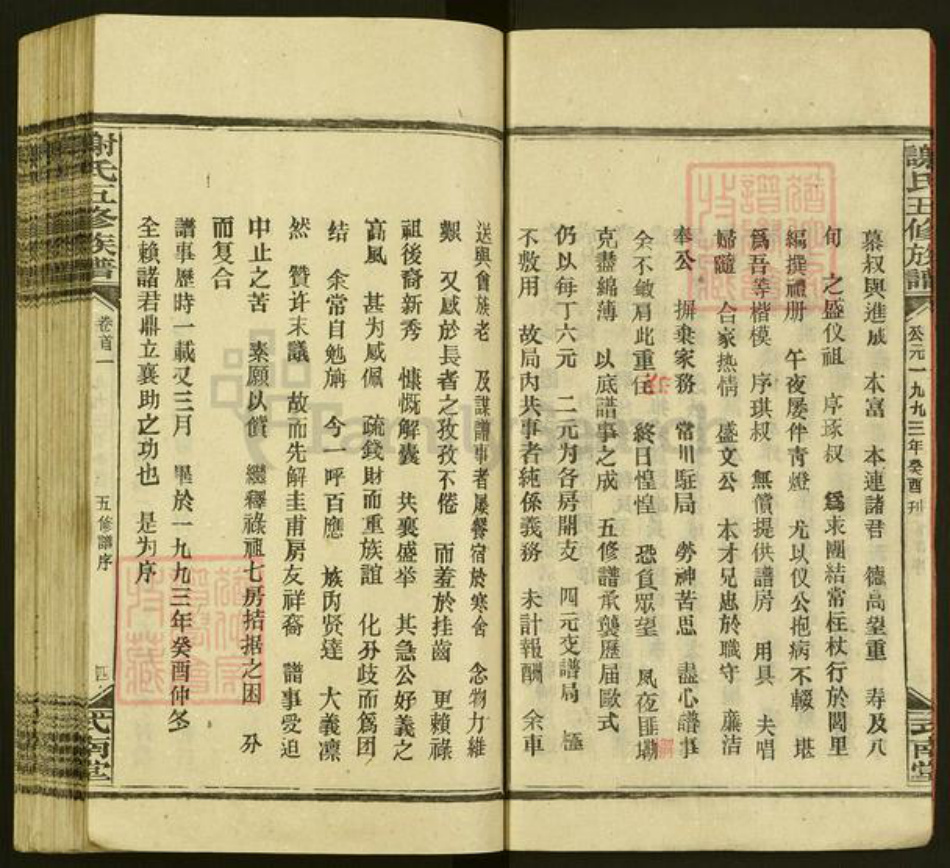 謝氏五修族譜
公元一九九三年癸酉刊
式南堂
慕叔與進成 本富 本連諸君 德高望重 寿及八
旬 之盛仪祖 序琢叔 爲求團結常枉杖行於閭里
編撰禮册 午夜屡伴青燈 尤以仪公抱病不輟 堪
爲吾等楷模 序琪叔 無償提供譜房 用具 夫唱
婦隨 合家热情 盛文公 本才兄忠於職守 廉洁
奉公 摒棄家務 常川駐局 勞神苦思 盡心譜事
余不敏肩此重任 終日惶惶 恐負眾望 夙夜匪
克盡綿薄 以底譜事之成 五修譜承襲歷届歐式
仍以每丁六元 二元为各房開支 四元交譜局 極
不敷用 故局内共事者純係義務 未計報酬 余車
送與會族老 及謀譜事者屡餐宿於寒舍 念物力維
艱 又感於長者之孜孜不倦 而羞於挂齒 更賴祿
祖後裔新秀 慷慨解囊 共襄盛举 其急公好義之
高風 甚为感佩 疏錢財而重族誼 化分歧而爲团
结 余常自勉旃 今一呼百應 族内贤達 大義凛
然 贊许末議 故而先解圭甫房友祥裔 譜事爱迫
中止之苦 素願以償 繼釋祿祖七房拮据之困 分
而复合
譜事歷時一載又三月 畢於一九九三年癸酉仲冬
全賴諸君鼎立襄助之功也 是为序
謝氏五修族譜
卷首一
五修譜序
四
式南堂